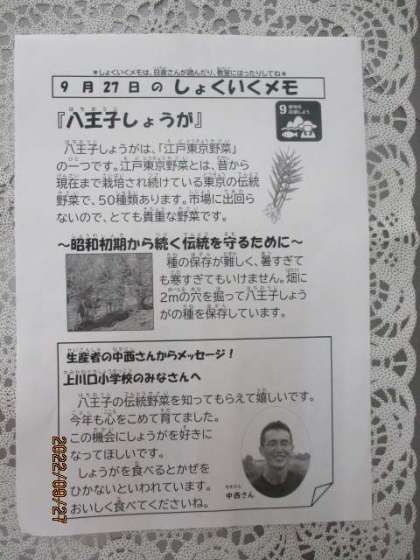 ＊しょくいくメモは、日直さんが読んだり、教室にはったりしてね＊
9 月 27 日 の しょくいくメモ
『八王子しょうが』
9
八王子しょうがは、「江戸東京野菜」
の一つです。江戸東京野菜とは、昔から
現在まで栽培され続けている東京の伝統
野菜で、50種類あります。市場に出回ら
ないので、とても貴重な野菜です。
～昭和初期から続く伝統を守るために～
種の保存が難しく、暑すぎて
も寒すぎてもいけません。畑に
2mの穴を掘って八王子しょう
がの種を保存しています。
生産者の中西さんからメッセージ！
上川口小学校のみなさんへ
八王子の伝統野菜を知ってもらえて嬉しいです。
今年も心をこめて育てました。
この機会にしょうがを好きに
なってほしいです。
しょうがを食べるとかぜを
ひかないといわれています。
おいしく食べてくださいね。
中西さん
2022/09/27